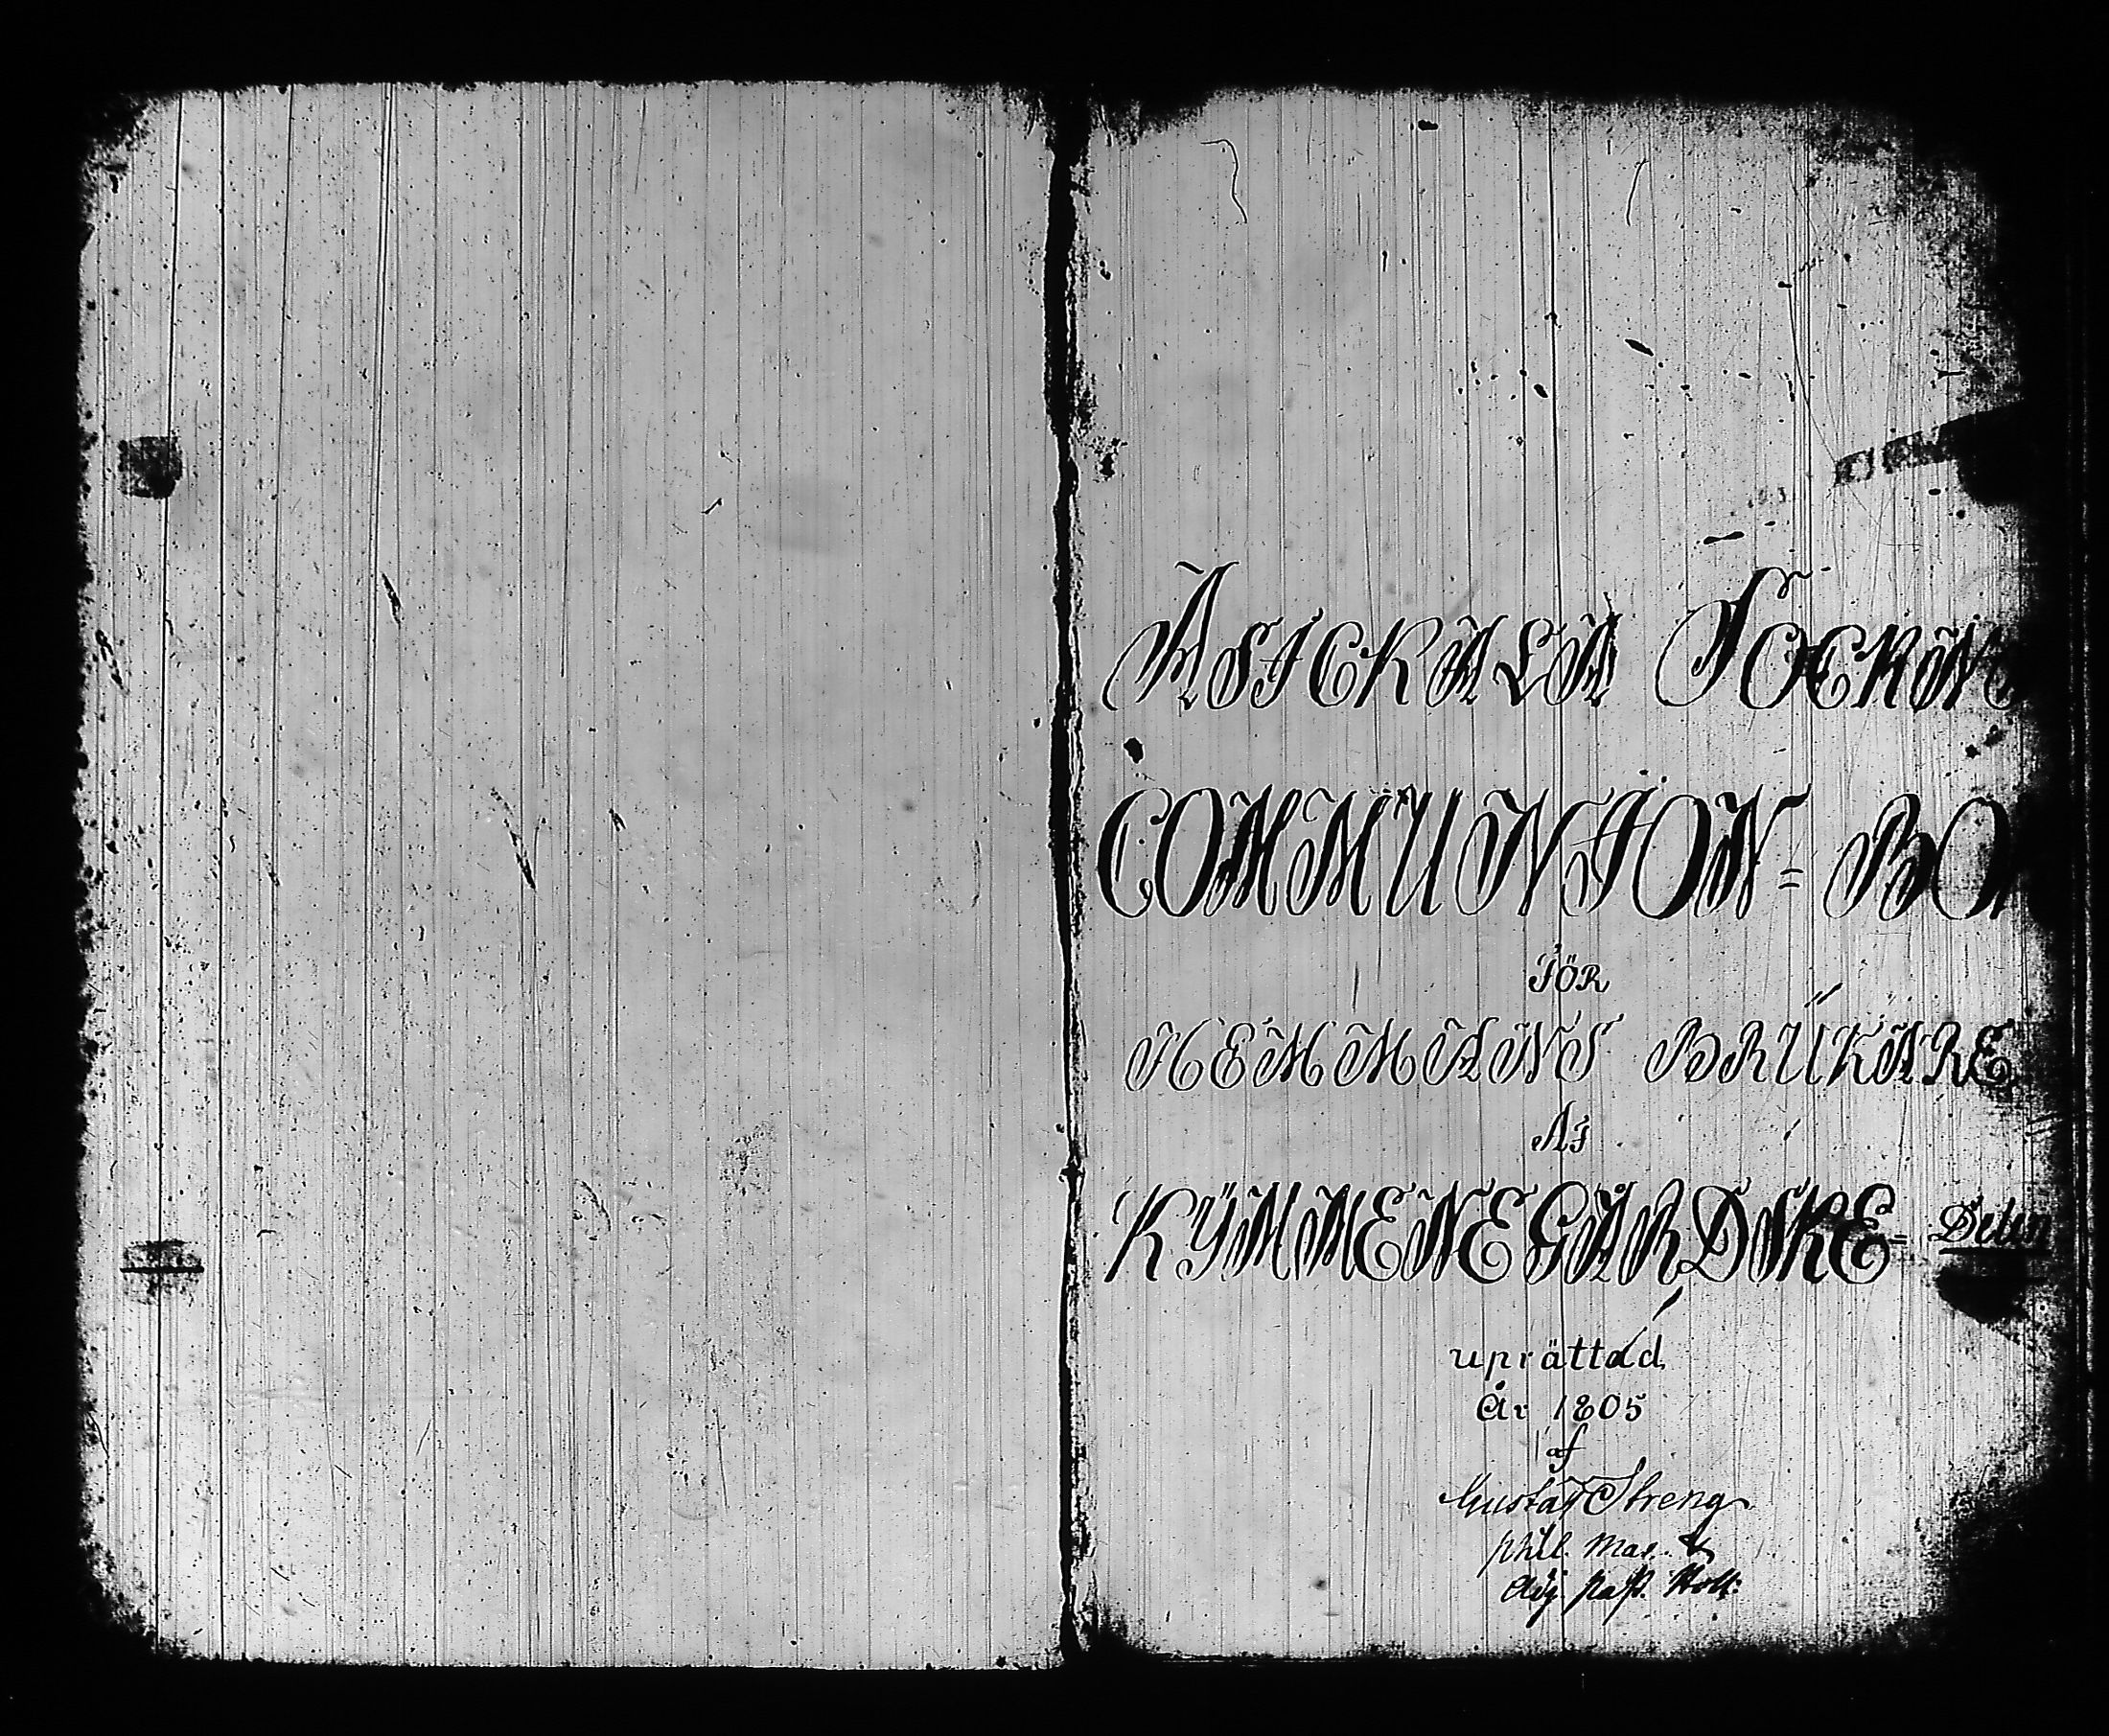 ASICKALA SOCKNS
COMMUNION= BOK
FÖR
HEMMANS BRUKARE
AF
KYMMENEGÅRDSKE= Delen
uprättad
År 1805
af
Gustaf Streng
phil. Mag. &
Adj. past. Holl: